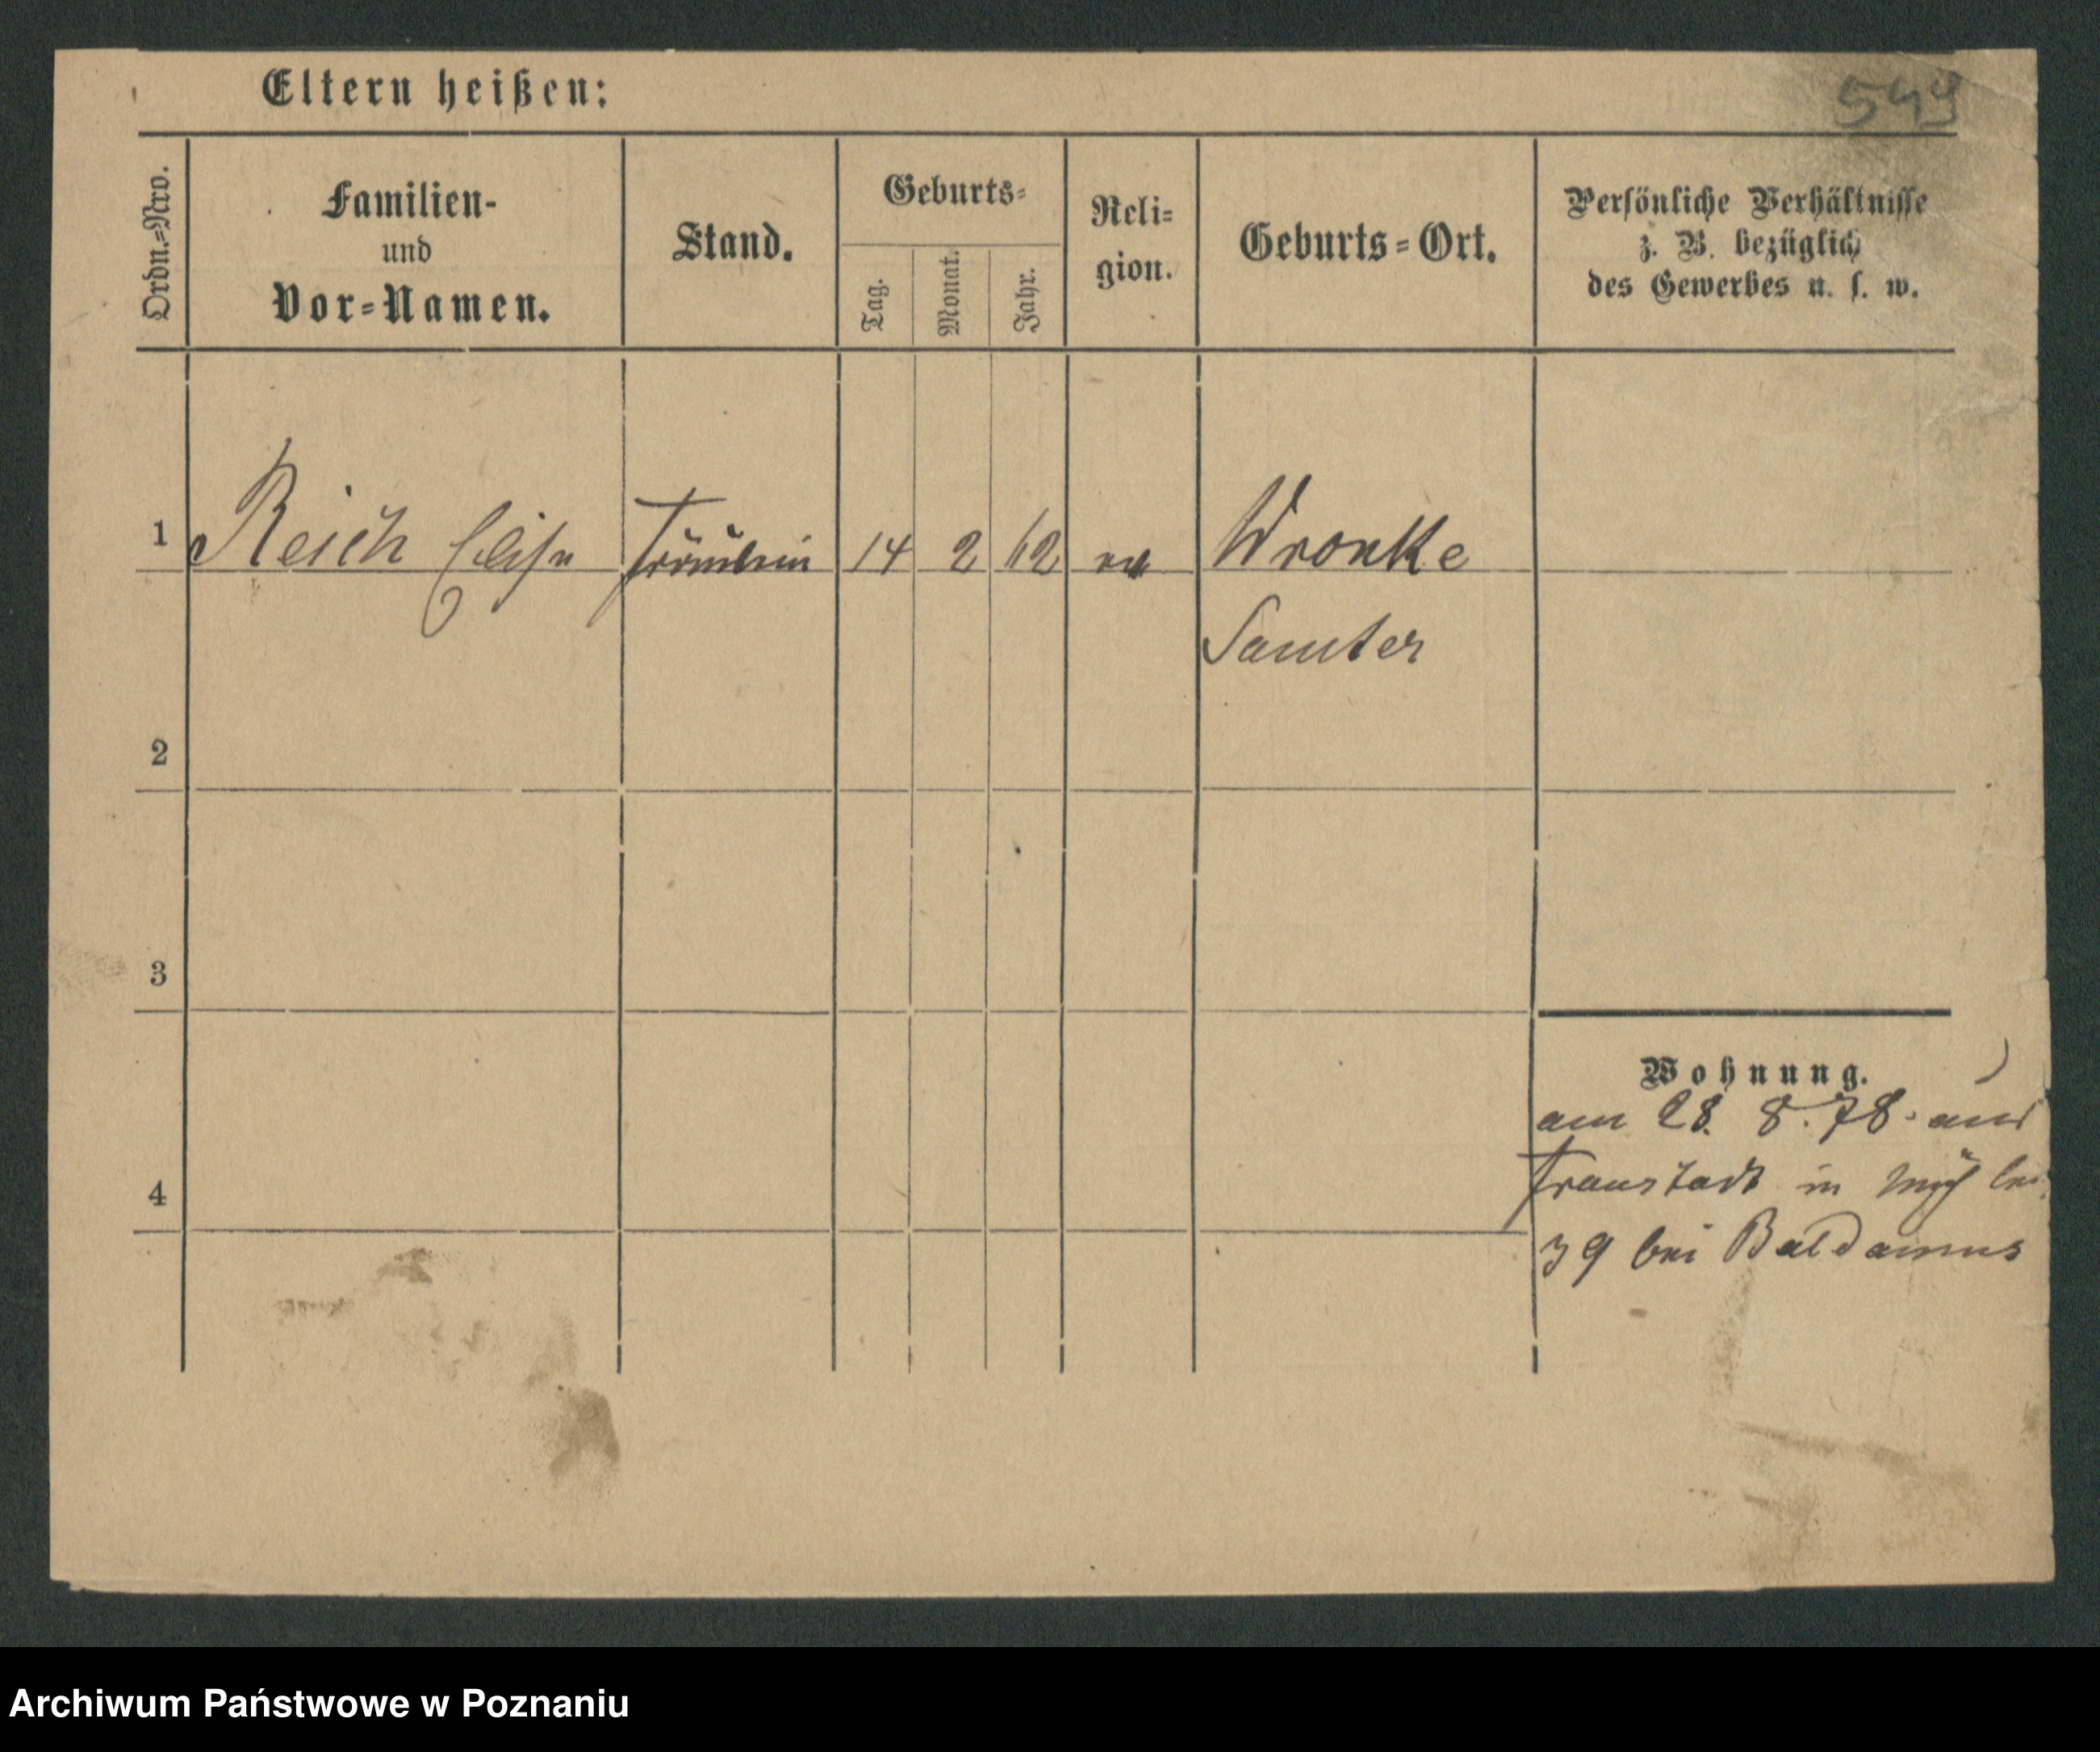 Eltern heißen:
549
Ordn.-Nro.
Familien-
und
Vor-Namen.
Stand.
Geburts-
Tag.
Monat.
Jahr.
Reli-
gion.
Geburts-Ort.
Persönliche Verhältnisse
z. B. bezüglich
des Gewerbes u. s. w.
1 Reich Elise Fräulein 14 2 62 ev Wronke
Samter
2
3
Wohnung.
am 28. 8. 78. aus
Fraustadt in
4
39 bei Baldamus
Archiwum Państwowe w Poznaniu